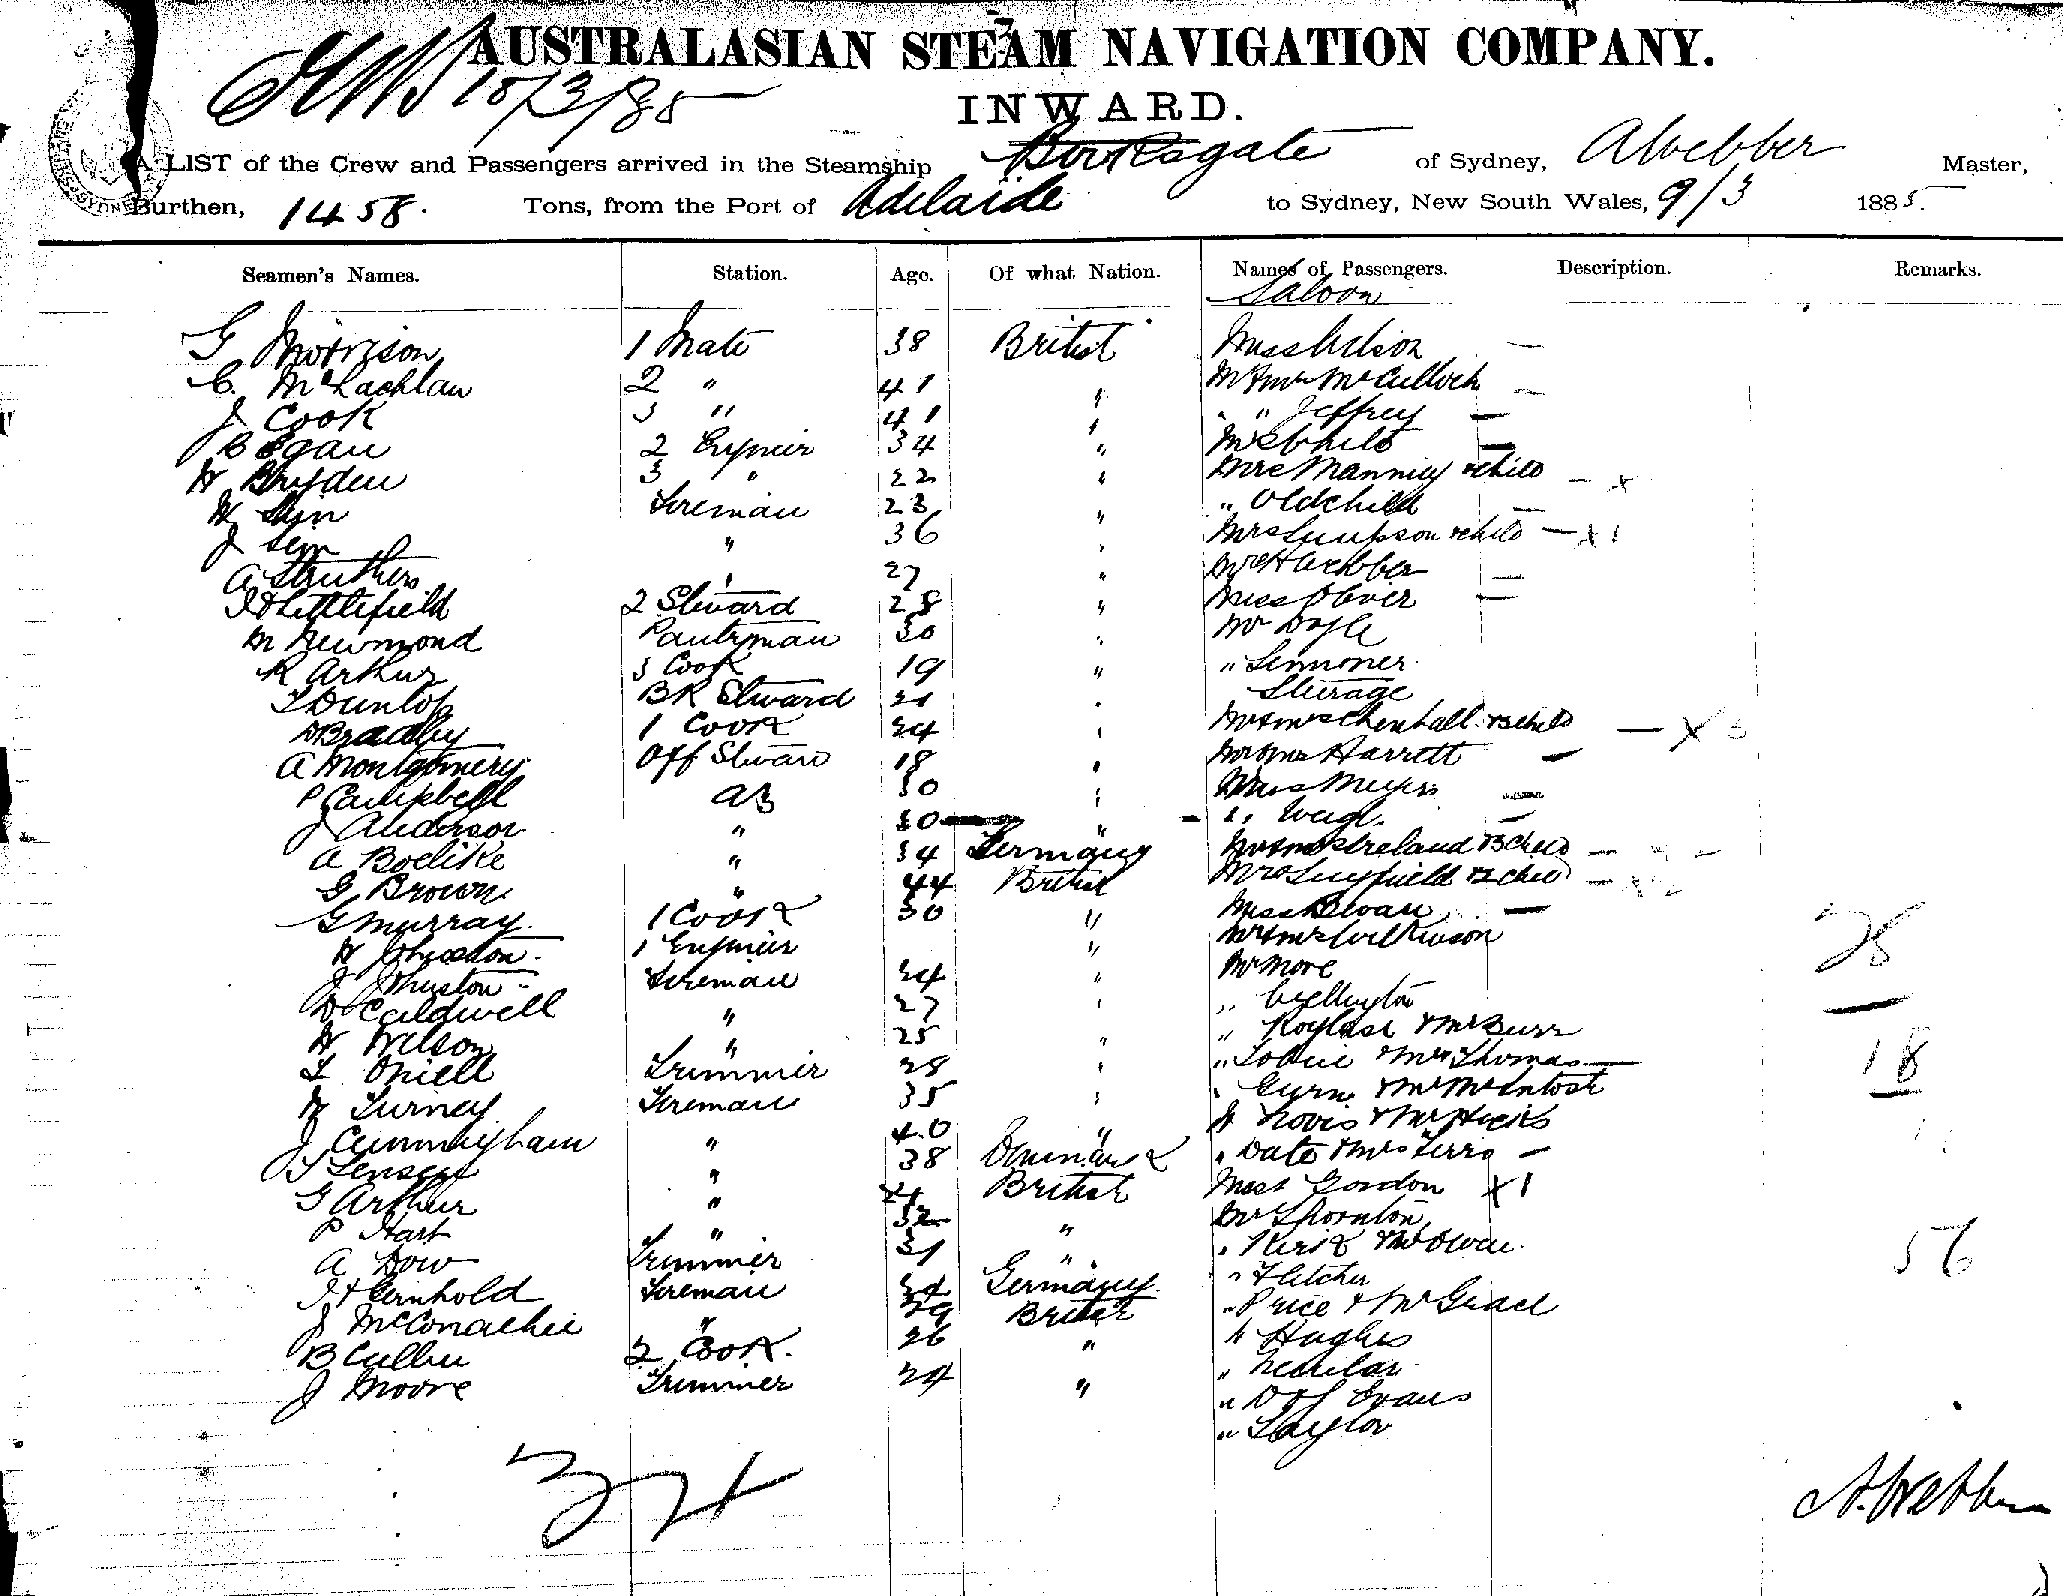 AUSTRALASIAN STEAM NAVIGATION COMPANY.
10/3/85
INWARD.
A LIST of the Crew and Passengers arrived in the Steamship Bowesgate of Sydney, A Webber Master,
Burthen, 1458. Tons, from the Port of Adelaide to Sydney, New South Wales, 9/3 1885.
Seamen's Names. Station. Age. Of what Nation. Names of Passengers. Description. Remarks.
Saloon
G Morrison 1 Mate 38 British Miss Wilson —
C. McLachlan 2 " 41 " Mr & Mrs McCulloch —
J Cook 3 " 41 " " " Jeffrey —
Egan 2 Engineer 34 " White —
W Bryden 3 " 22 " Mrs Manning & child — x
W Sim Fireman 23 " " Oldchild —
J Sim " 36 " Mrs Simpson & child — x 1
A Struthers " 27 " H Webber —
Littlefield 2 Steward 28 " Miss Oliver —
M Newmond Pantryman 30 " Mr Doyle
R Arthur 3 Cook 19 " "
T Dunlop BR Steward 21 " Steerage
D Bradley 1 Cook 24 " Mr & Mrs Chenhall & 3 child — X 3
A Montgomery Off Steward 18 " Mr & Mrs Harrett —
P Campbell AB 30 " Miss Meyers —
J Anderson " 30 " " —
A Boelike " 34 Germany Mr & Mrs Ireland & 3 child —
G Brown " 44 British Mrs & 2 child —
G Murray 1 Cook 30 " Miss Bevan —
W Johnston 1 Engineer " Mr & Mrs Wilkinson
28
J Johnston Fireman 24 " Mr More
D Caldwell " 27 " " Wellington
W Wilson " 25 " " & Mr Burr
T Oniell Trimmer 28 " " Tobue & Mr Thomas
18
W Turney Fireman 35 " " & Mr McIntosh
J Cunningham " 40 " " Novis & Mr Hicks
Jensen " 38 Denmark " Date & Mrs Ferris —
G Arthur " 21 British Miss Gordon X 1
P Hart " 32 " Mr Thornton
A Dow Trimmer 31 " " Kirk & Mr Owen
56
Fireman 34 Germany " Fletcher
J McConachie " 29 British " Price & Mr Grace
B Cullen 2 Cook. 26 " " Hughes
J Moore Trimmer 24 " "
" D & J Evans
" Taylor
34
A. Webber